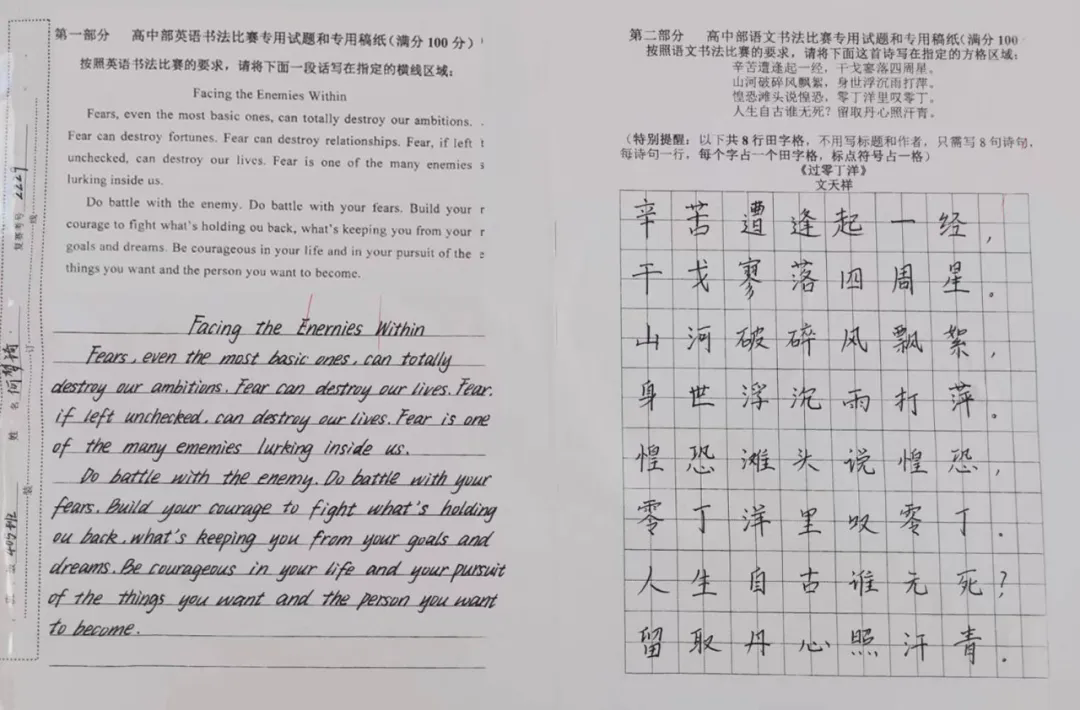 第一部分 高中部英语书法比赛专用试题和专用稿纸(满分100分)
按照英语书法比赛的要求，请将下面一段话写在指定的横线区域：
Facing the Enemies Within
Fears, even the most basic ones, can totally destroy our ambitions.
Fear can destroy fortunes. Fear can destroy relationships. Fear, if left
unchecked, can destroy our lives. Fear is one of the many enemies
lurking inside us.
Do battle with the enemy. Do battle with your fears. Build your
courage to fight what's holding ou back, what's keeping you from your
goals and dreams. Be courageous in your life and in your pursuit of the
things you want and the person you want to become.
Facing the Enernies Within
Fears, even the most basic ones, can totally
destroy our ambitions. Fear can destroy our lives. Fear.
if left unchecked, can destroy our lives. Fear is one
of the many ememies lurking inside us.
Do battle with the enemy. Do battle with your
fears. Build your courage to fight what's holding
ou back, what's keeping you from your goals and
dreams. Be courageous in your life and your pursuit
of the things you want and the person you want
to become.
复赛考号 2229
姓名
班 409班
装
订
线
第二部分 高中部语文书法比赛专用试题和专用稿纸(满分100
按照语文书法比赛的要求，请将下面这首诗写在指定的方格区域：
辛苦遭逢起一经，干戈寥落四周星。
山河破碎风飘絮，身世浮沉雨打萍。
惶恐滩头说惶恐，零丁洋里叹零丁。
人生自古谁无死？留取丹心照汗青。
(特别提醒：以下共8行田字格，不用写标题和作者，只需写8句诗句，
每诗句一行，每个字占一个田字格，标点符号占一格)
《过零丁洋》
文天祥
辛苦遭逢起一经，
干戈寥落四周星。
山河破碎风飘絮，
身世浮沉雨打萍。
惶恐滩头说惶恐，
零丁洋里叹零丁.
人生自古谁无死?
留取丹心照汗青.